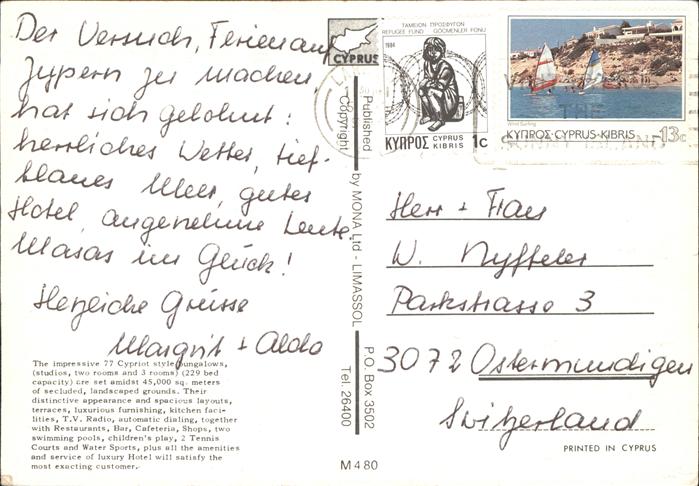 Der Versuch, Ferien auf
Zypern zu machen,
hat sich gelohnt:
herrliches Wetter, tief-
blaues Meer, gutes
Hotel, angenehme Leute.
Masas im Glück!
Herzliche Grüsse
Margrit + Aldo
The impressive 77 Cypriot style bungalows,
(studios, two rooms and 3 rooms) (229 bed
capacity) cre set amidst 45,000 sq. meters
of secluded, landscaped grounds. Their
distinctive appearance and spacious layouts,
terraces, luxurious furnishing, kitchen faci-
lities, T.V. Radio, automatic dialing, together
with Restaurants, Bar, Cafeteria, Shops, two
swimming pools, children's play, 2 Tennis
Courts and Water Sports, plus all the amenities
and service of luxury Hotel will satisfy the
most exacting customer.
CYPRUS
Published by MONA Ltd - LIMASSOL P.O. Box 3502
Copyright Tel. 26400
M 4 80
ΤΑΜΕΙΟΝ ΠΡΟΣΦΥΓΩΝ
REFUGEE FUND GÖÇMENLER FONU
1984
ΚΥΠΡΟΣ CYPRUS KIBRIS 1c
Wind Surfing
ΚΥΠΡΟΣ·CYPRUS·KIBRIS 13c
Herr + Frau
W. Nyffeler
Parkstrasse 3
3072 Ostermundigen
Switzerland
PRINTED IN CYPRUS